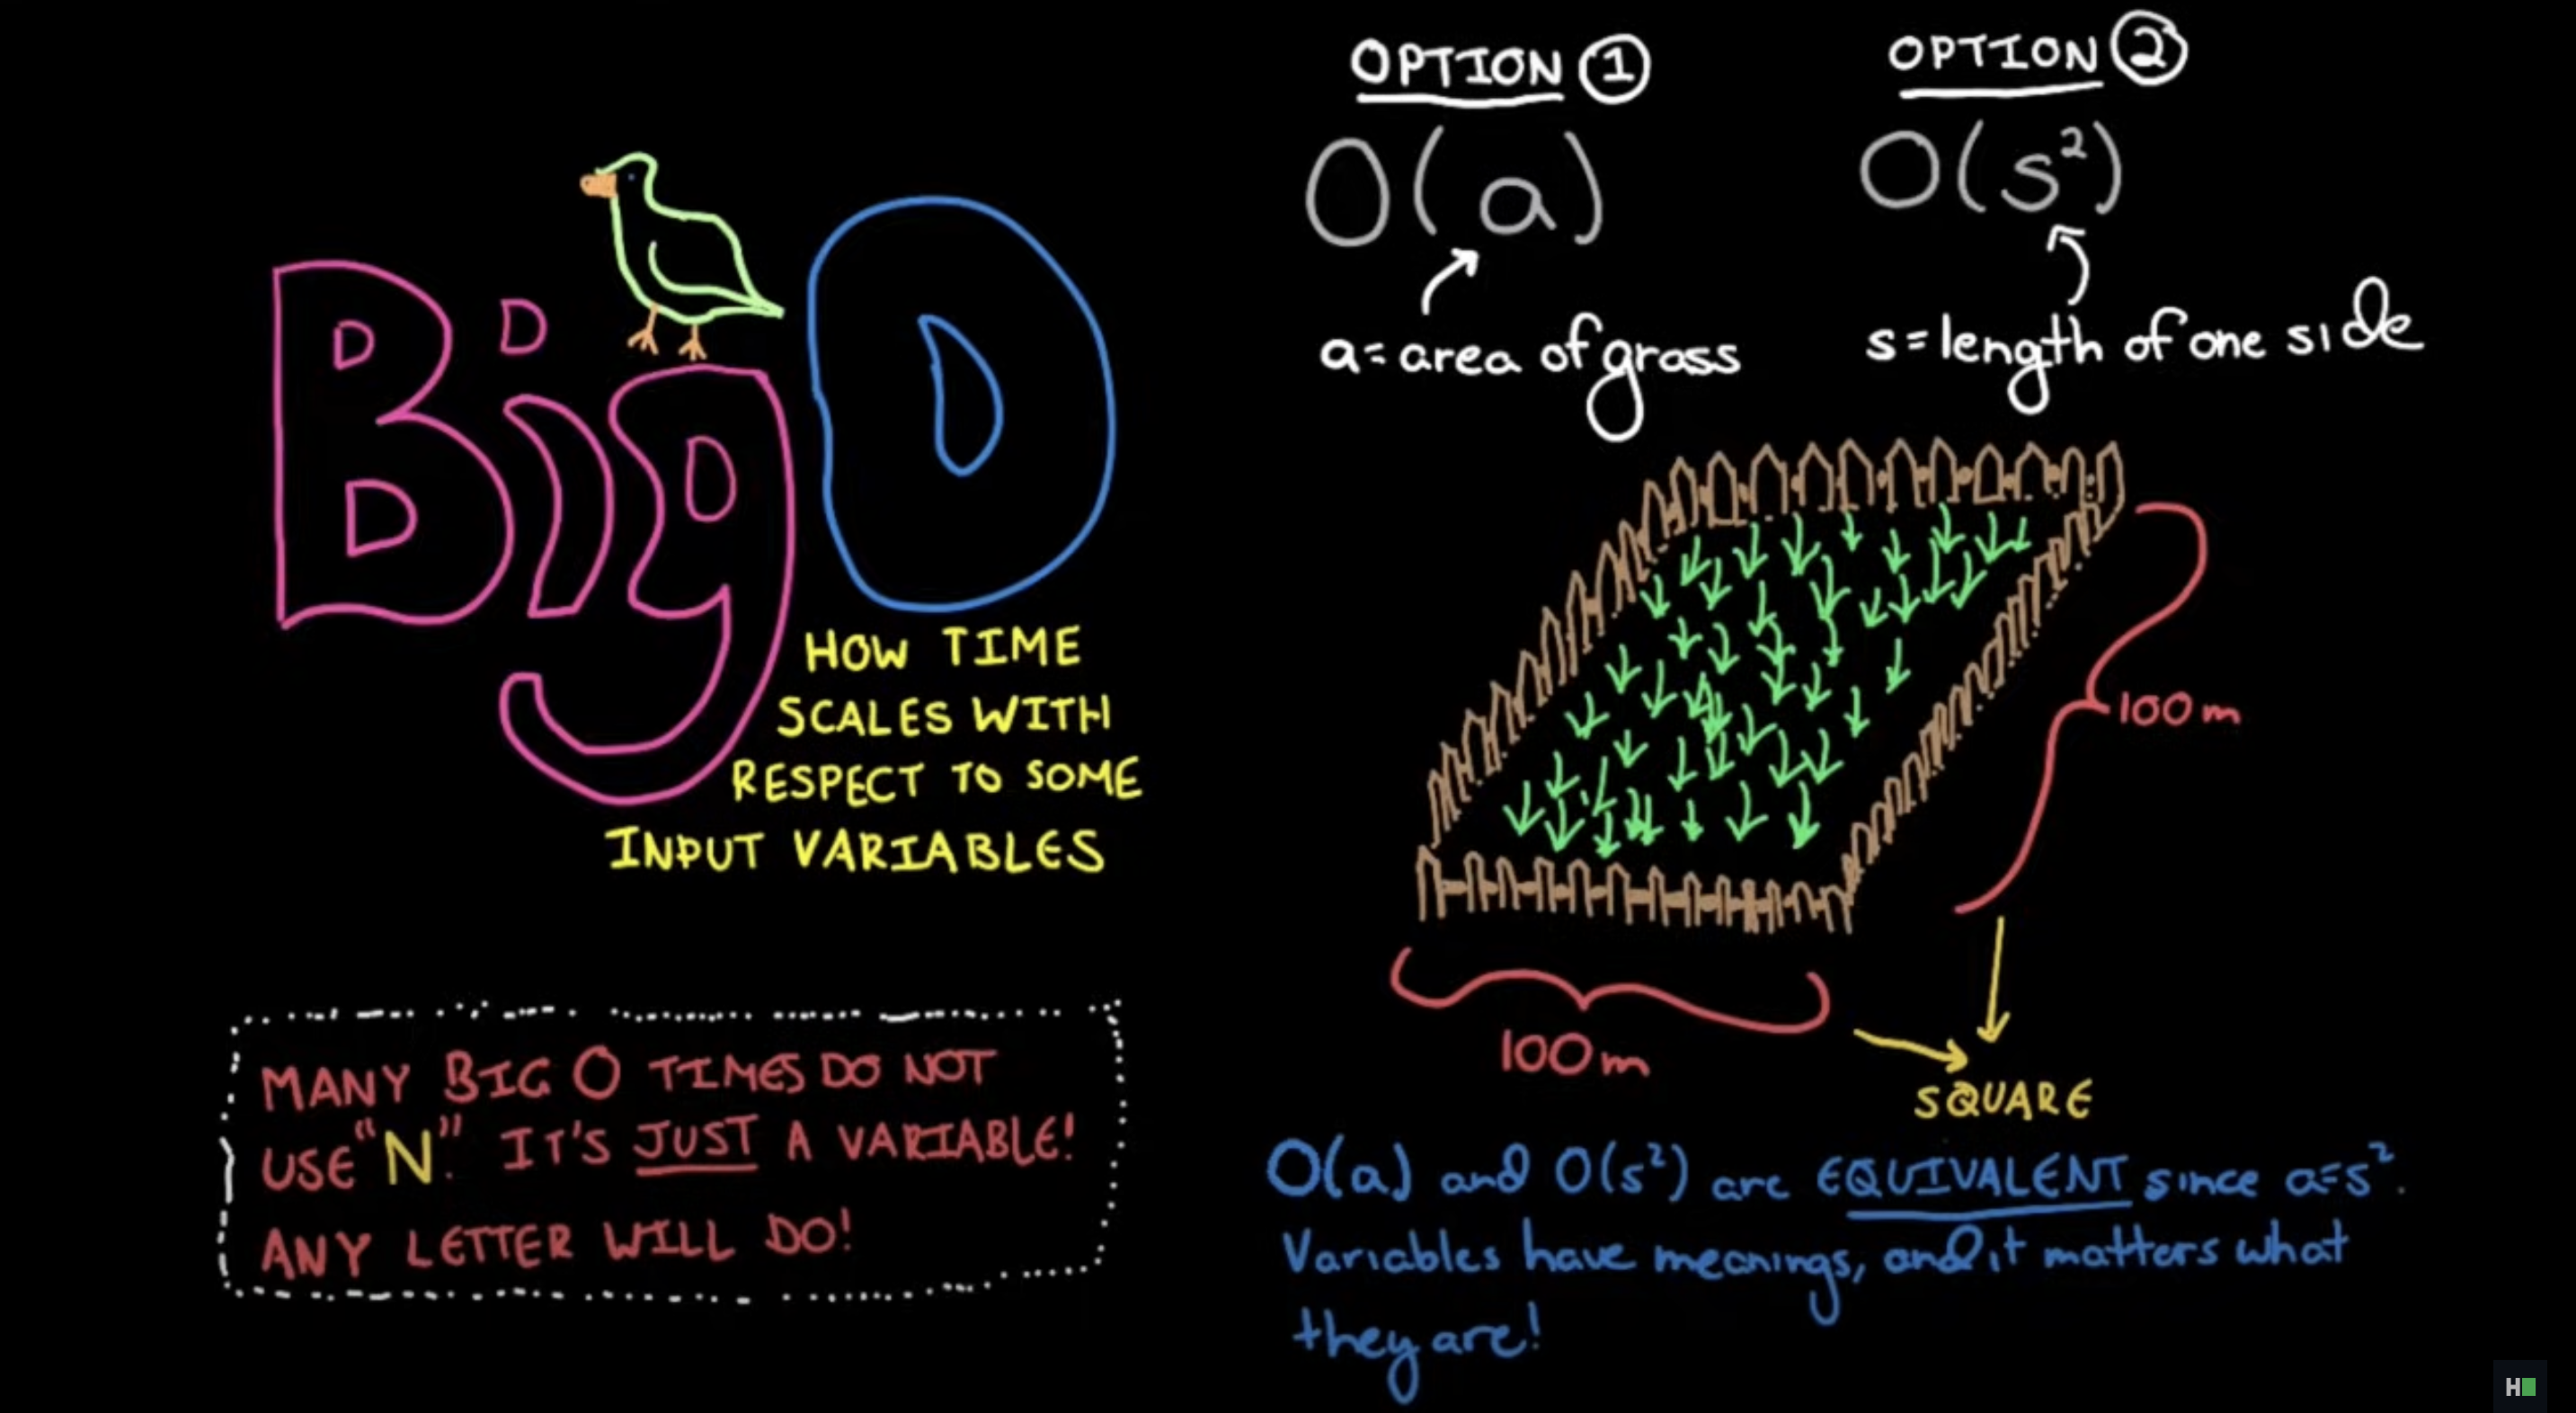 Big O
HOW TIME
SCALES WITH
RESPECT TO SOME
INPUT VARIABLES
MANY BIG O TIMES DO NOT
USE "N". IT'S JUST A VARIABLE!
ANY LETTER WILL DO!
OPTION 1
O(a)
a = area of grass
OPTION 2
O(s²)
s = length of one side
100 m
100 m
SQUARE
O(a) and O(s²) are EQUIVALENT since a=s².
Variables have meanings, and it matters what
they are!
H